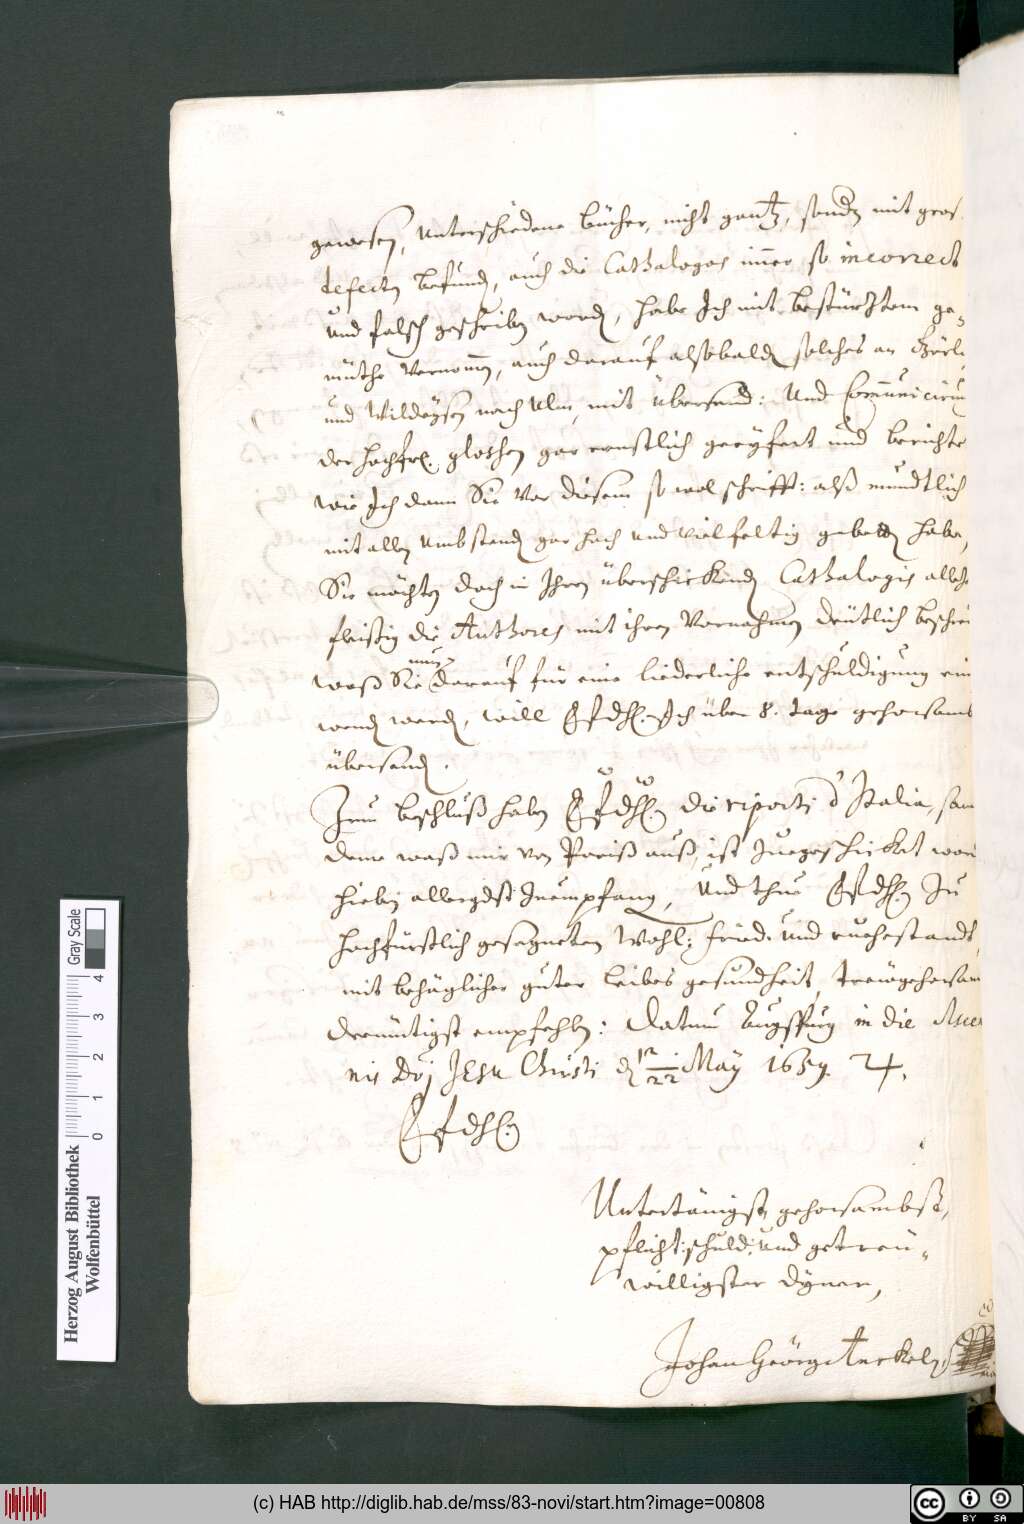 gewesen, unterschiedene bücher, nicht gantz, sondern mit gros
defecten befunden, auch die Cathalogos immer so incorrect
und falsch geschriben worden, habe Ich mit bestürtztem ge-
müthe vernommen, auch darauf alsobalden solches an
und Wildeysen nach Ulm, mit übersend: und Communicirung
der hochfrl. glossen gar ernstlich geeyfert und berichte
wie Ich dann Sie vor diesem so wol schrifft: alß mündtlich
mit allen umbstenden gar hoch und vielfeltig gebetten habe,
Sie möchten doch in Ihren überschickenden Cathalogis
fleißig die Authores mit ihren Vornahmen deütlich beschrei
waß Sie nun darauf für eine liederliche entschuldigung ein
wenden werden, will EfdHl. Ich über 8. tage gehorsamb
übersenden.
Zum beschluß haben EfdHl. die riporti d'Italia, sam
deme waß mir von Pariß auß, ist zuegeschickt wor
hiebey allergdst zuempfang, und thue EfdHl. zu
hochfürstlich gesegneten Wohl: fried: und ruehestandt,
mit behäglicher guter leibes gesundheit, trewgehorsam
demütigst empfehlen: Datum Augspurg in die Ascen
nis Dnj JEsu Christi d 12/22 May 1659. 4.
EfdHl.
Untertänigst, gehorsambst,
pflicht: schuld: und getreu-
willigster dyner,
Johan Geörg Anckel.
Herzog August Bibliothek
Wolfenbüttel
0 1 2 3 4 Gray Scale
(c) HAB http://diglib.hab.de/mss/83-novi/start.htm?image=00808
cc BY SA